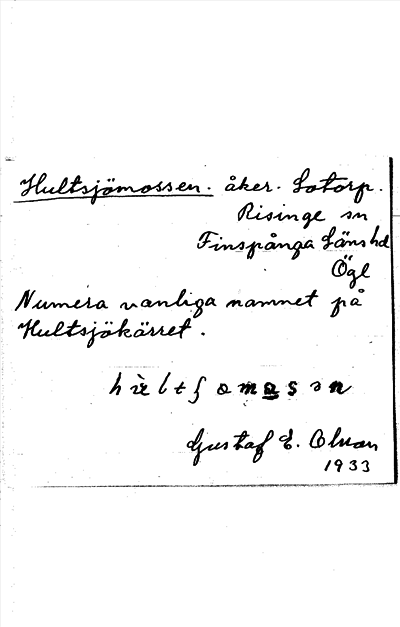 Hultsjömossen. åker. Lotorp.
Risinge sn
Finspånga Läns hd
Ögl
Numera vanliga namnet på
Hultsjökärret.
Gustaf E.
1933